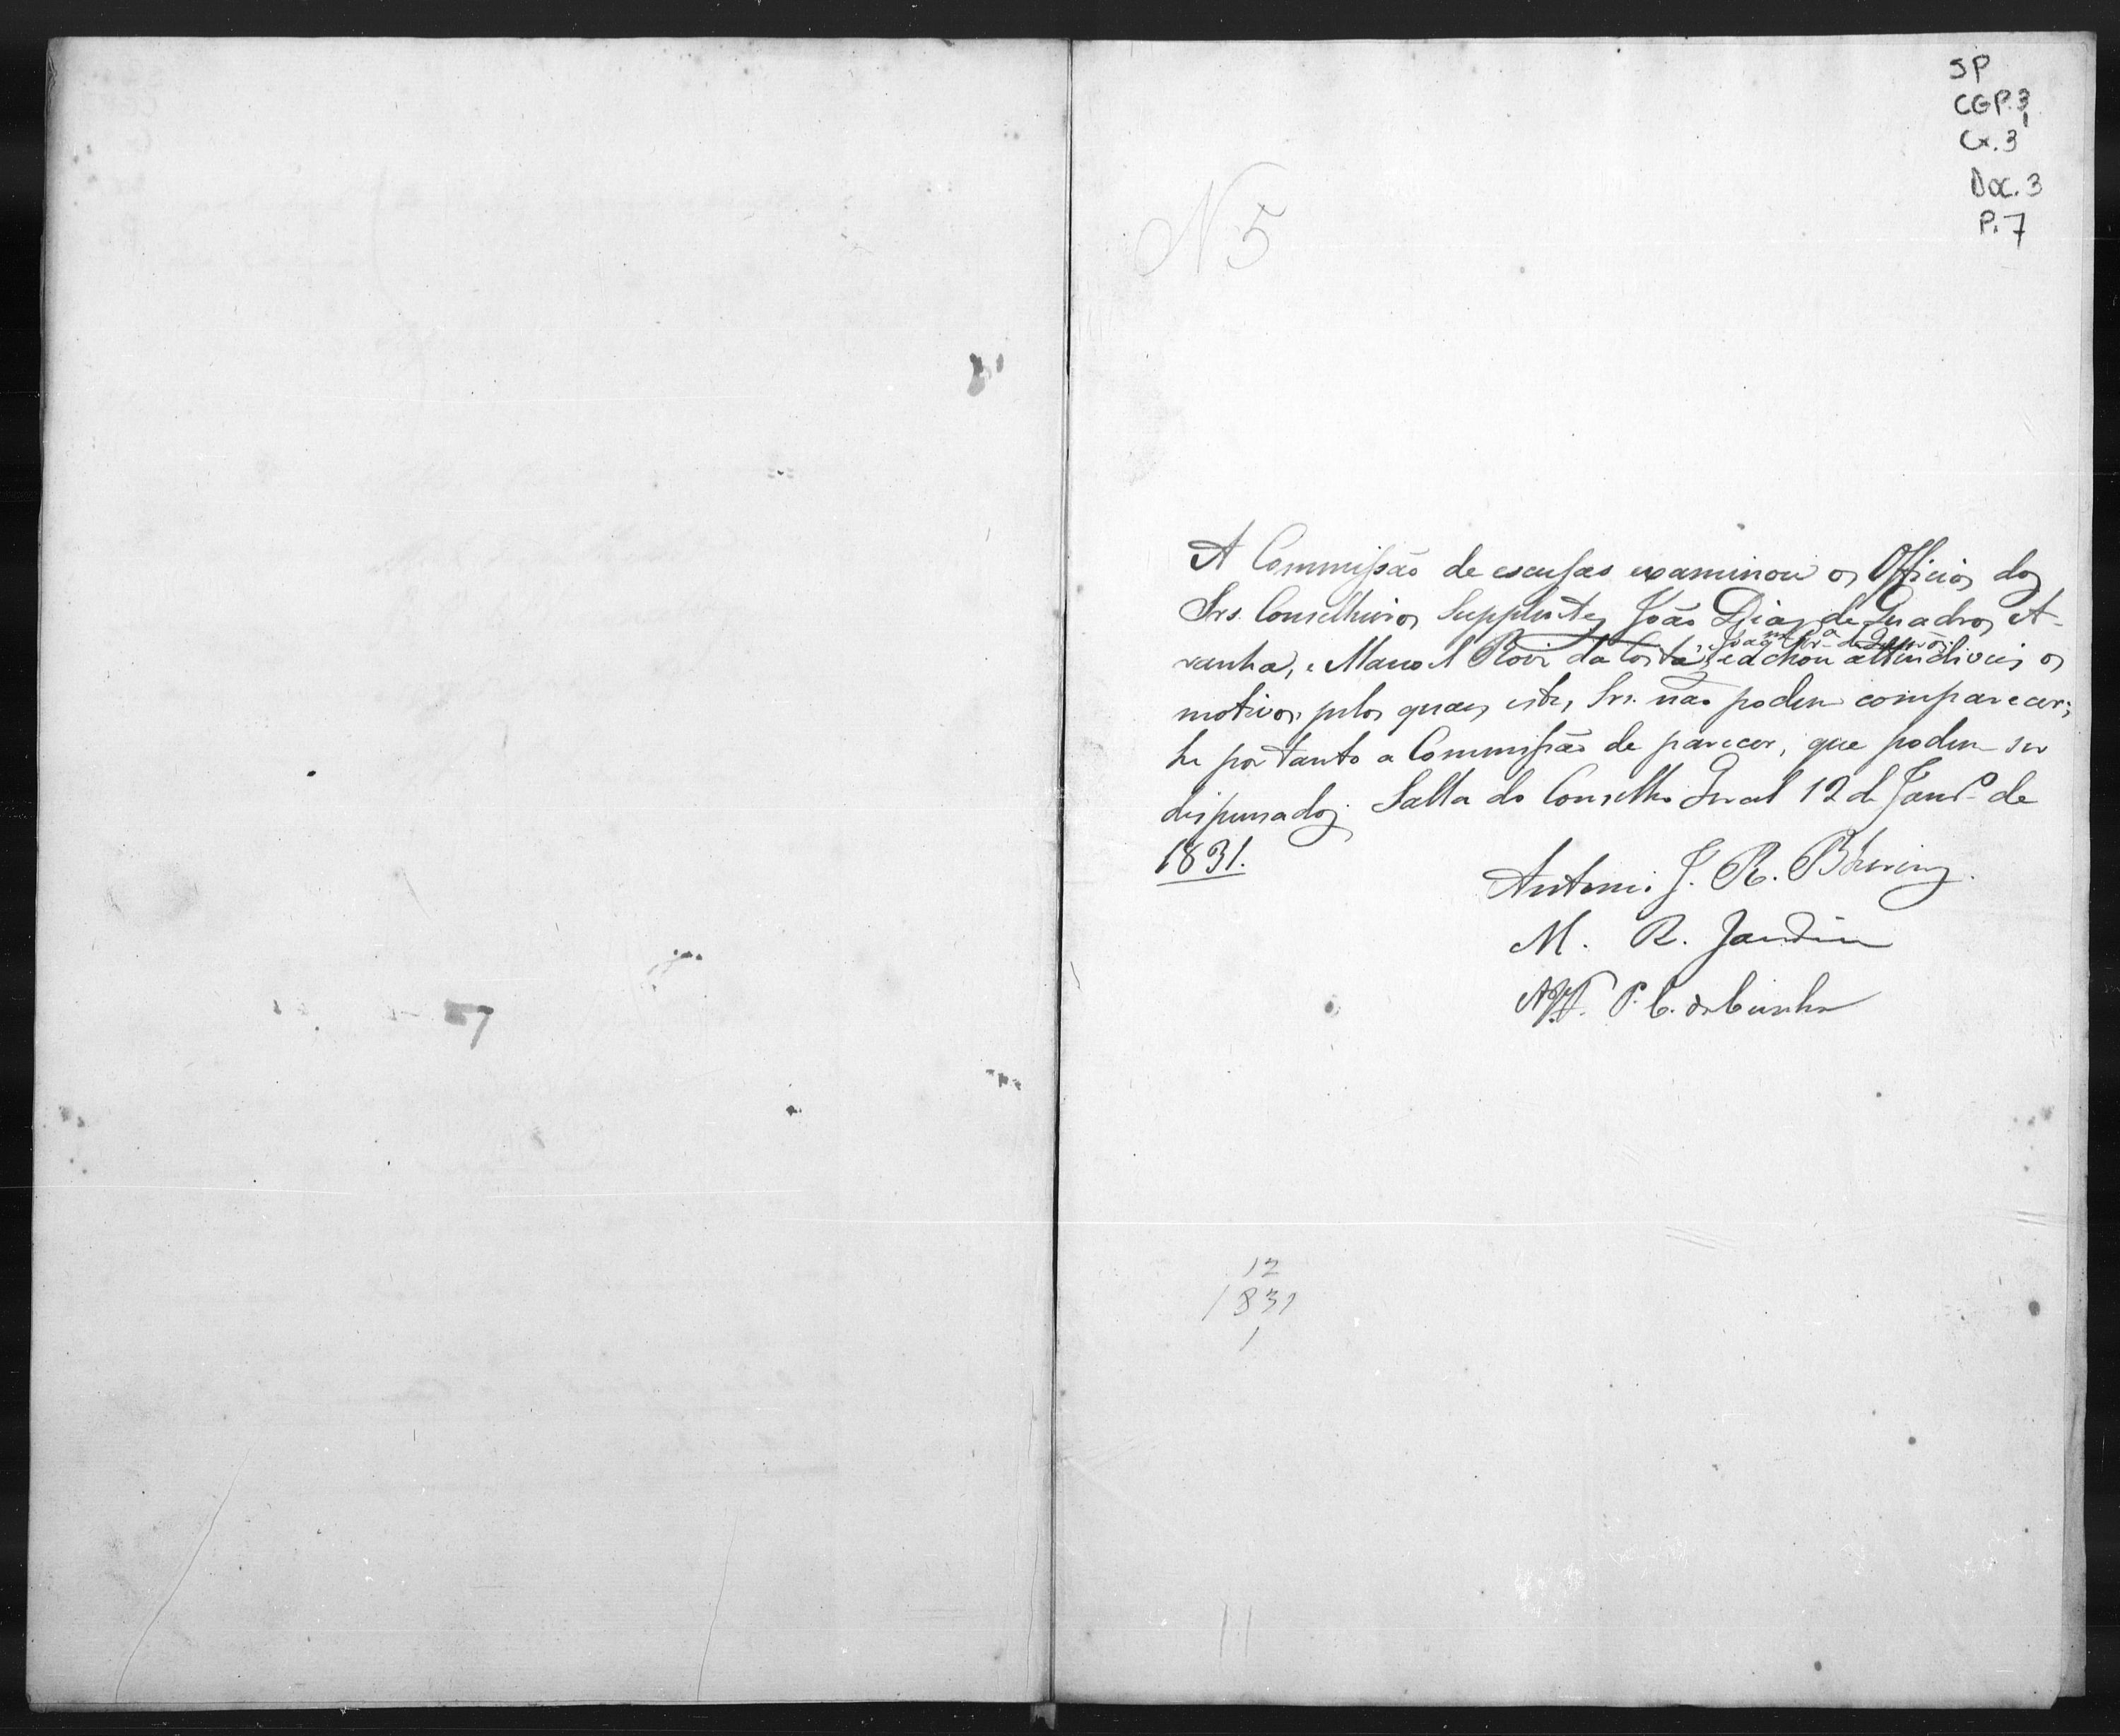 SP
CGP.3,
Cx.3
Doc. 3
P. 7
N 5
A Commissão de escusas examinou os Officios dos
Srs. Conselheiros Supplentes João Dias de Quadros A-
ranha, e Manoel Roiz da Costa, e achou attendiveis os
motivos pelos quaes estes Srs. não podem comparecer;
he por tanto a Commissão de parecer, que podem ser
dispensados. Salla do Conselho Geral 12 de Janrº de
1831.
Antonio J. R.
M. R. Jordão
P. C. da Cunha
12
1831
1